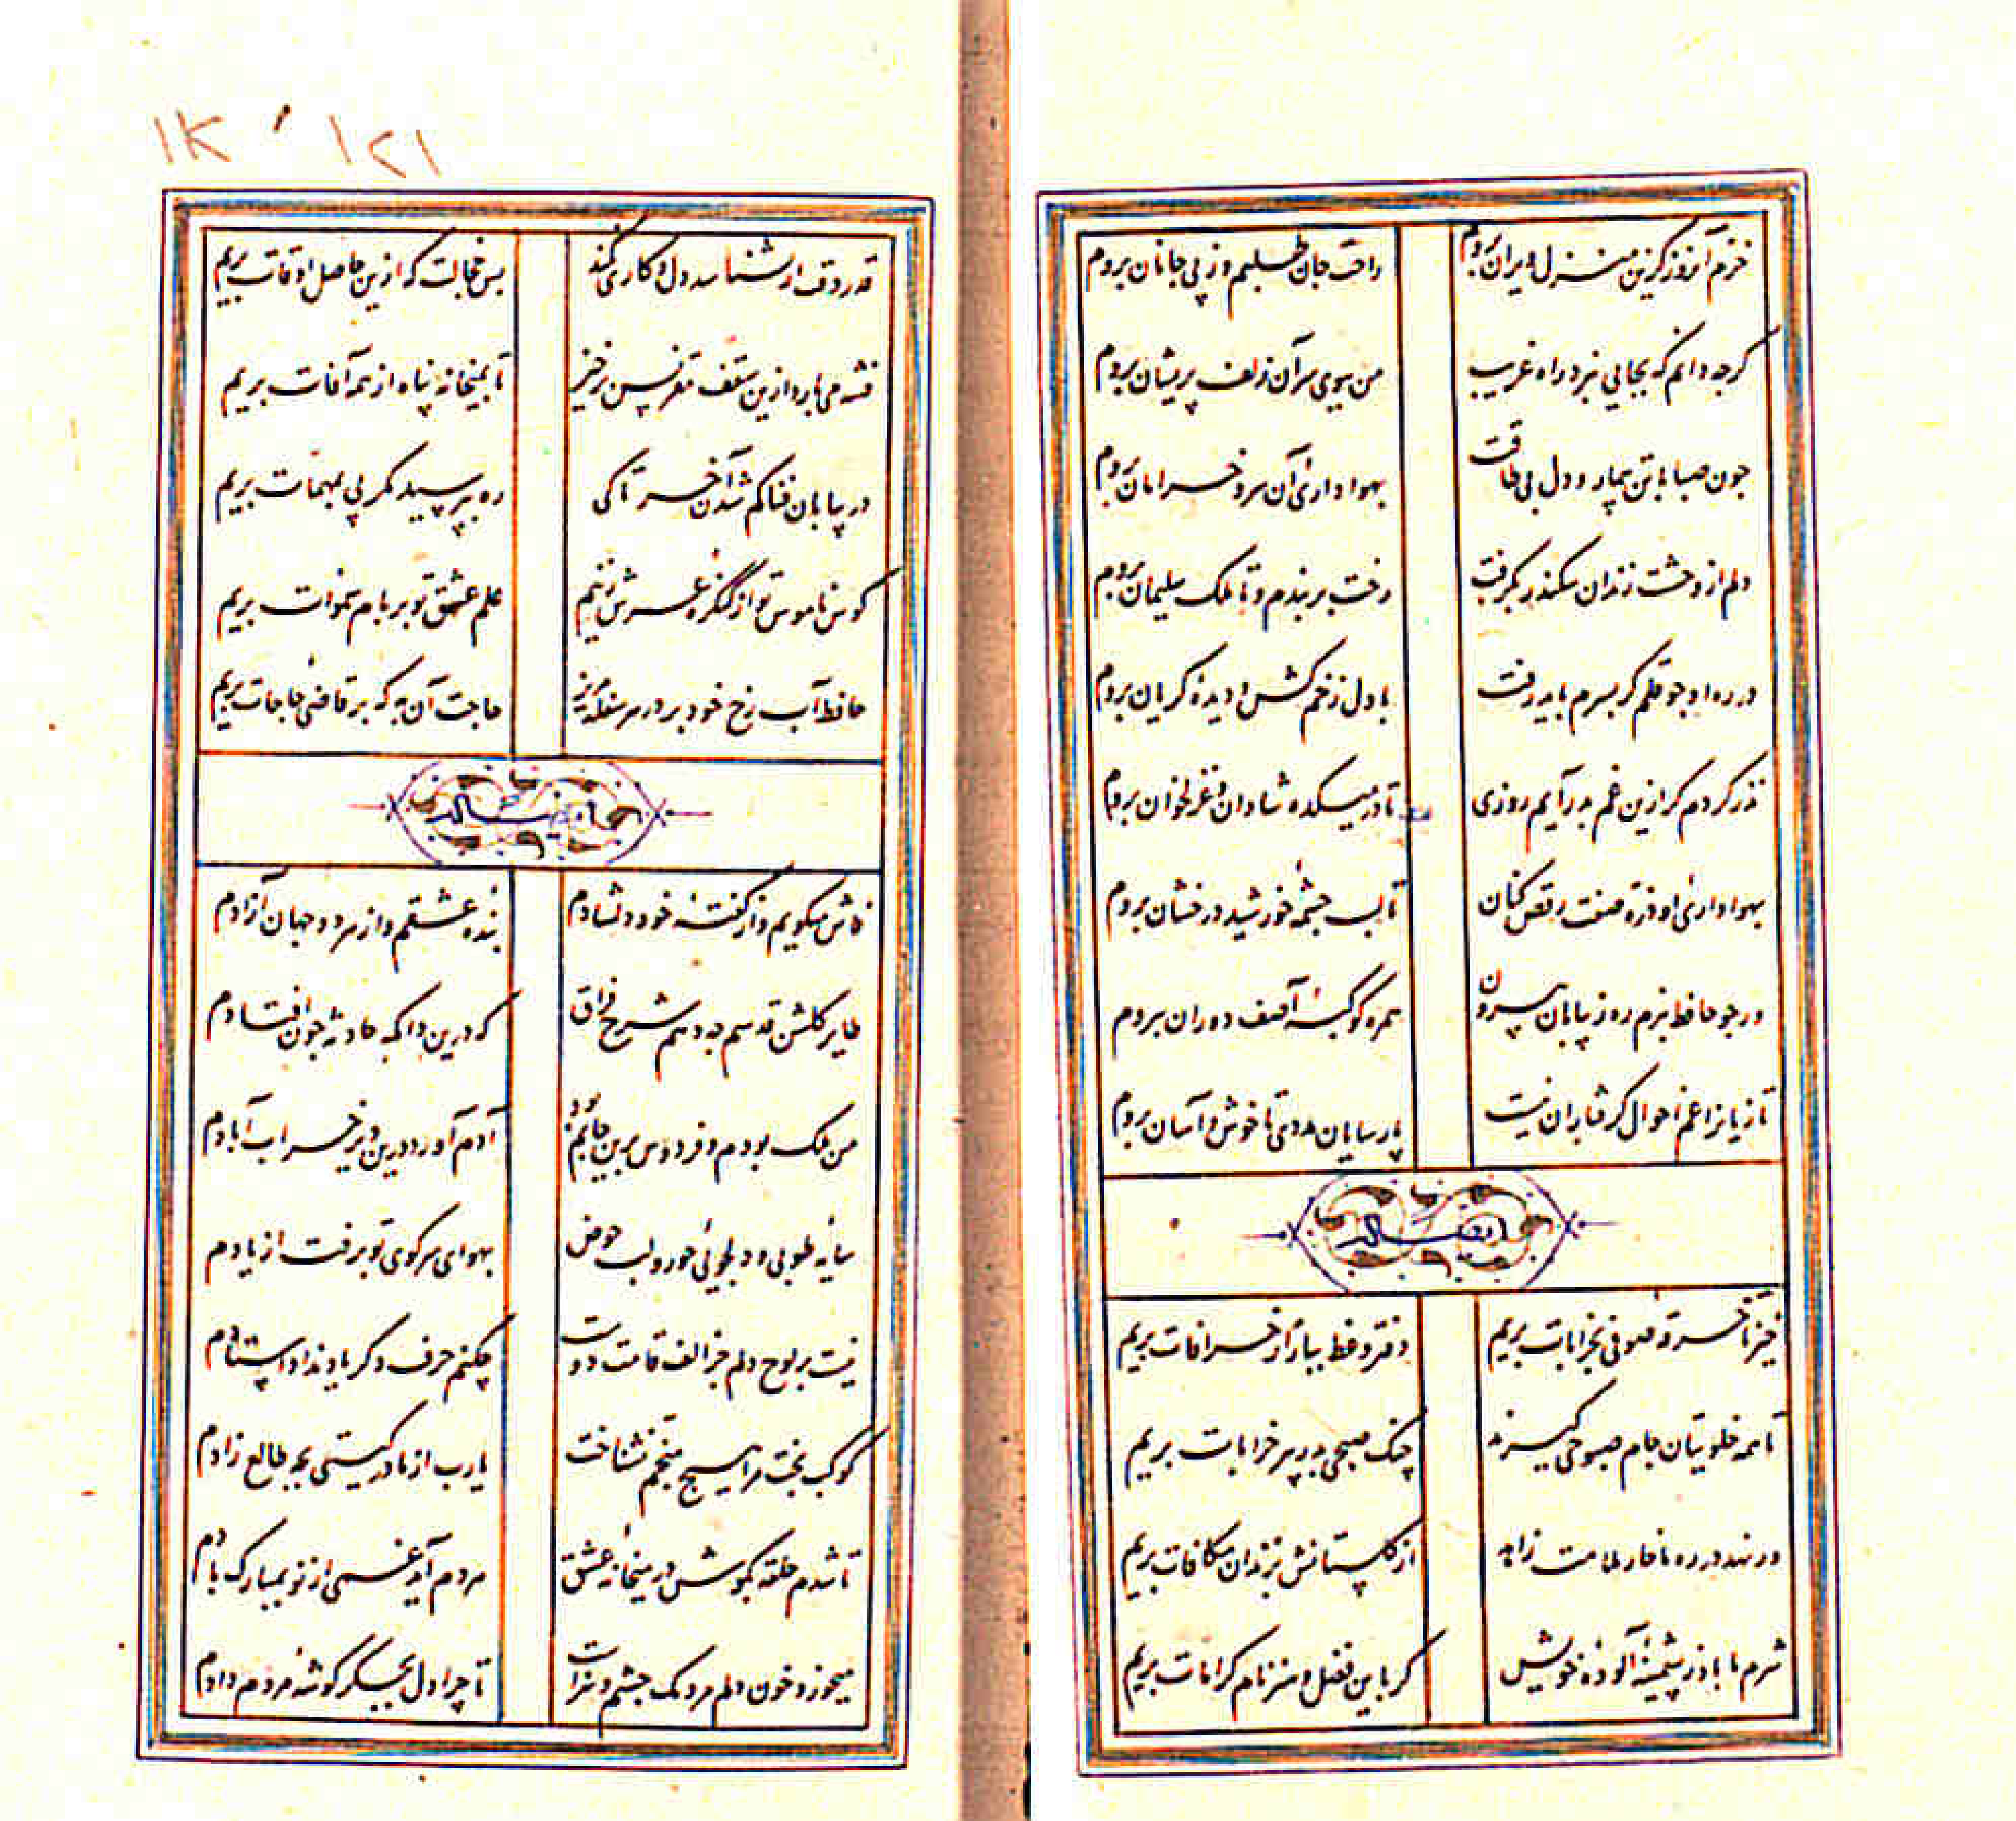 خرم آنروز کزین منزل ویران بروم راحت جان طلبم وز پی جانان بروم
کرچه دانم که بجایی نبرد راه غریب من ببوی سر آن زلف پریشان بروم
چون صبا باتن بیمار و دل بی طاقت بهواداری آن سرو خرامان بروم
دلم از وحشت زندان سکندر بکرفت رخت بر بندم و تا ملک سلیمان بروم
در ره او چو قلم کر بسرم باید رفت با دل زخم کش و دیده کریان بروم
نذر کردم کر ازین غم بدر آیم روزی تا در میکده شادان و غزلخوان بروم
بهواداری او ذره صفت رقص کنان تا لب چشمه خورشید درخشان بروم
ور چو حافظ نبرم ره ز بیابان بیرون همره کوکبه آصف دوران بروم
تازیانرا غم احوال کرفتاران نیست پارسایان مددی تا خوش و آسان بروم
خیز تا خرقه صوفی بخرابات بریم دفتر وعظ ببازار خرافات بریم
تا همه خلوتیان جام صبوحی کیرند چنک صبحی بدر پیر خرابات بریم
ور نهد در ره ما خار ملامت زاهد از کلستانش بزندان مکافات بریم
شرم ما باد ز پشمینه آلوده خویش کر باین فضل و هنر نام کرامات بریم
۱۲۱
قدر وقت ار نشناسد دل و کاری نکند بس خجالت که ازین حاصل اوقات بریم
فتنه می بارد ازین سقف مقرنس برخیز تا بمیخانه پناه از همه آفات بریم
در بیابان فنا کم شدن آخر تا کی ره بپرسید مکر پی بمهمات بریم
کوس ناموس تو از کنکره عرش زنیم علم عشق تو بر بام سموات بریم
حافظ آب رخ خود بر در هر سفله مریز حاجت آن به که بر قاضی حاجات بریم
فاش میکویم و از کفته خود دلشادم بنده عشقم و از هر دو جهان آزادم
طایر کلشن قدسم چه دهم شرح فراق که درین دامکه حادثه چون افتادم
من ملک بودم و فردوس برین جایم بود آدم آورد درین دیر خراب آبادم
سایه طوبی و دلجویی حور و لب حوض بهوای سر کوی تو برفت از یادم
نیست بر لوح دلم جز الف قامت دوست چکنم حرف دکر یاد نداد استادم
کوکب بخت مرا هیچ منجم نشناخت یارب از مادر کیتی بچه طالع زادم
تا شدم حلقه بکوش در میخانه عشق هر دم آید غمی از نو بمبارک بادم
میخورد خون دلم مردمک چشم و سزاست تا چرا دل بجکر کوشه مردم دادم